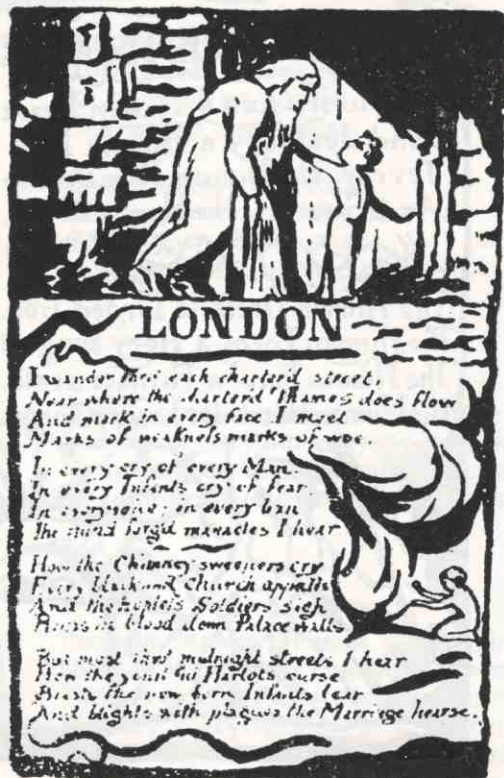 LONDON
I wander thro' each charter'd street,
Near where the charter'd Thames does flow
And mark in every face I meet
Marks of weakness marks of woe.
In every cry of every Man.
In every Infants cry of fear.
In every voice; in every ban
The mind forg'd manacles I hear
How the Chimney sweepers cry
Every blackning Church appalls
And the hapless Soldiers sigh
Runs in blood down Palace walls
But most thro' midnight streets I hear
How the youthful Harlots curse
Blasts the new born Infants tear
And blights with plagues the Marriage hearse.